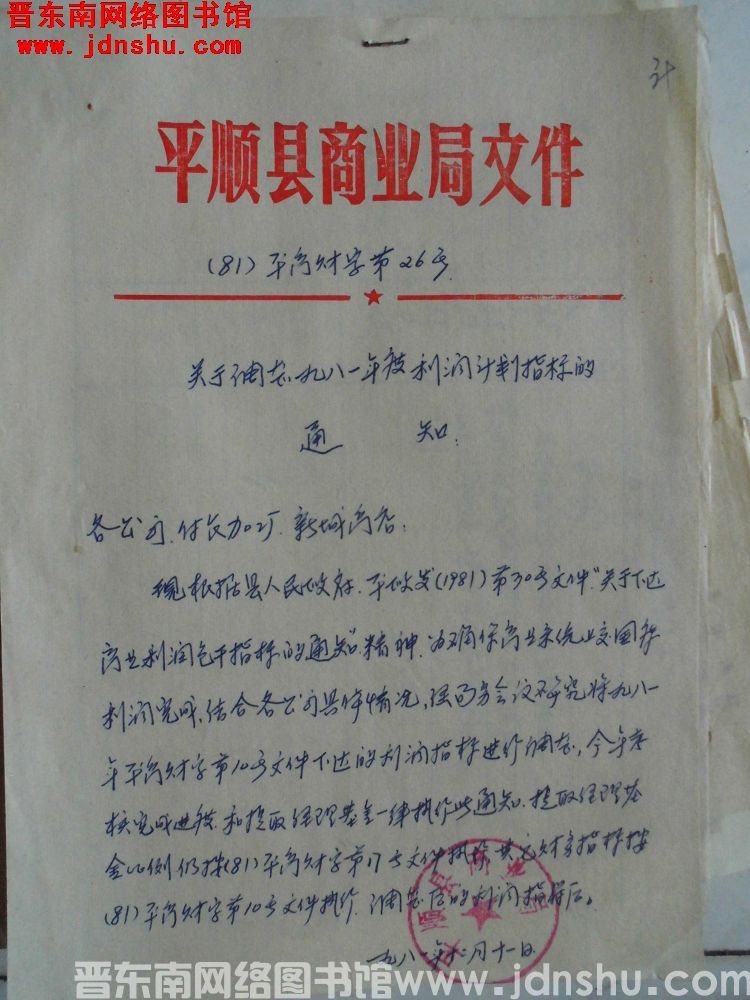 晋东南网络图书馆
www.jdnshu.com
平顺县商业局文件
(81)平商财字第26号
关于调整一九八一年度利润计划指标的
通 知:
各公司、付食加工厂、新城商店:
现根据县人民政府、平政发(1981)第30号文件"关于下达
商业利润包干指标的通知"精神、为确保商业系统上交国家
利润完成,结合各公司具体情况,经局务会议研究将一九八一
年平商财字第10号文件下达的利润指标进行调整,今年考
核完成进度和提取经理基金一律执行此通知、提取经理基
金比例仍按(81)平商财字第17号文件执行、其它财务指标按
(81)平商财字第10号文件执行、调整后的利润指标后。
一九八一年 月十一日
晋东南网络图书馆 www.jdnshu.com